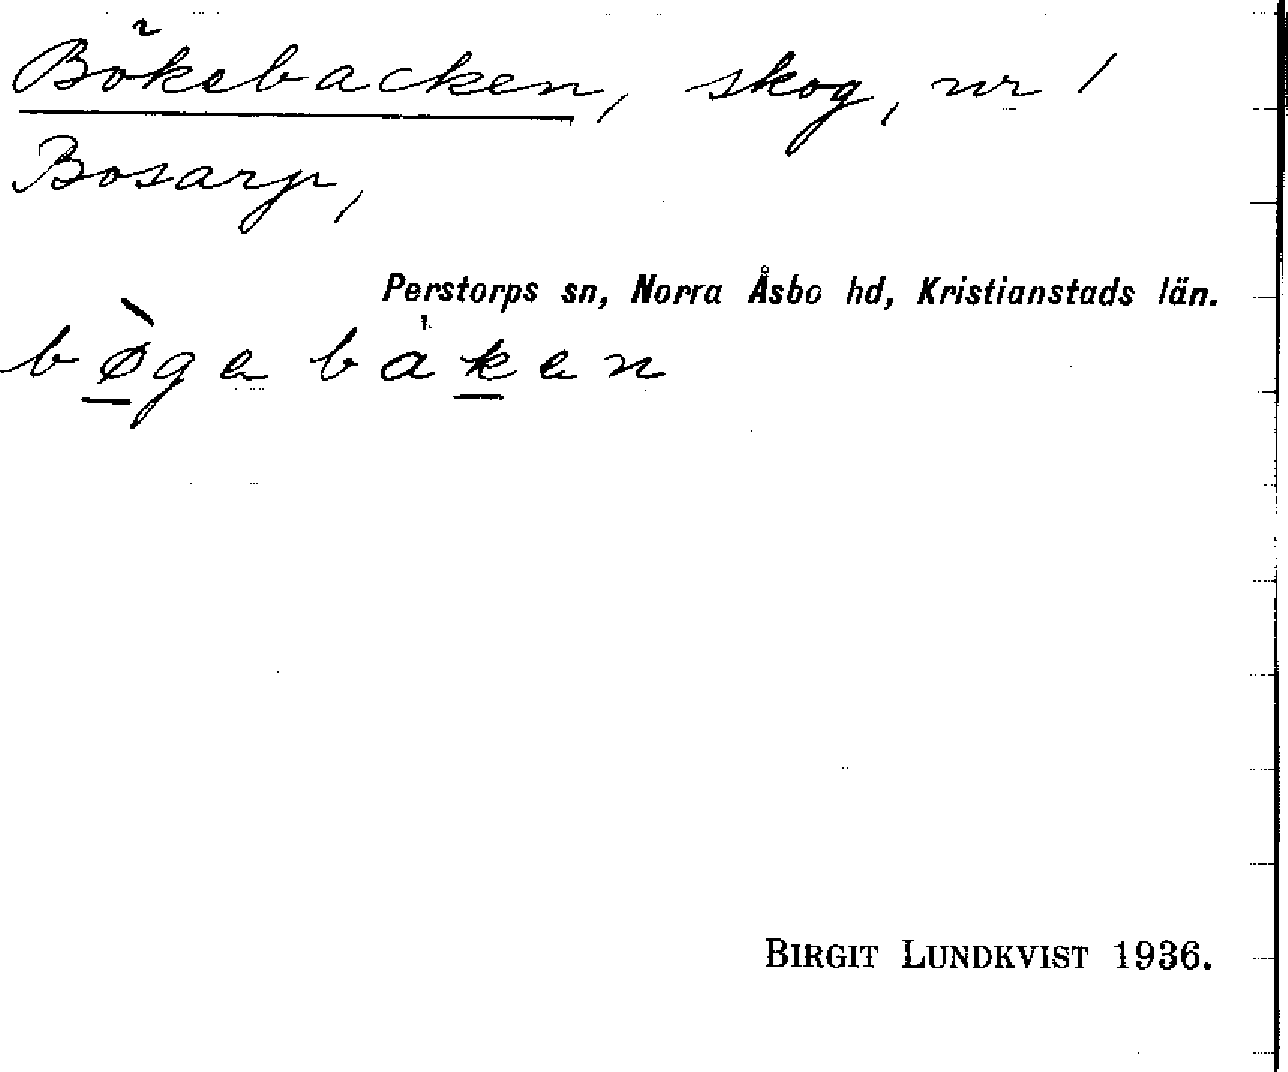 Bökebacken, skog, nr 1
Bosarp,
Perstorps sn, Norra Åsbo hd, Kristianstads län.
bø̀gebaken
BIRGIT LUNDKVIST 1936.